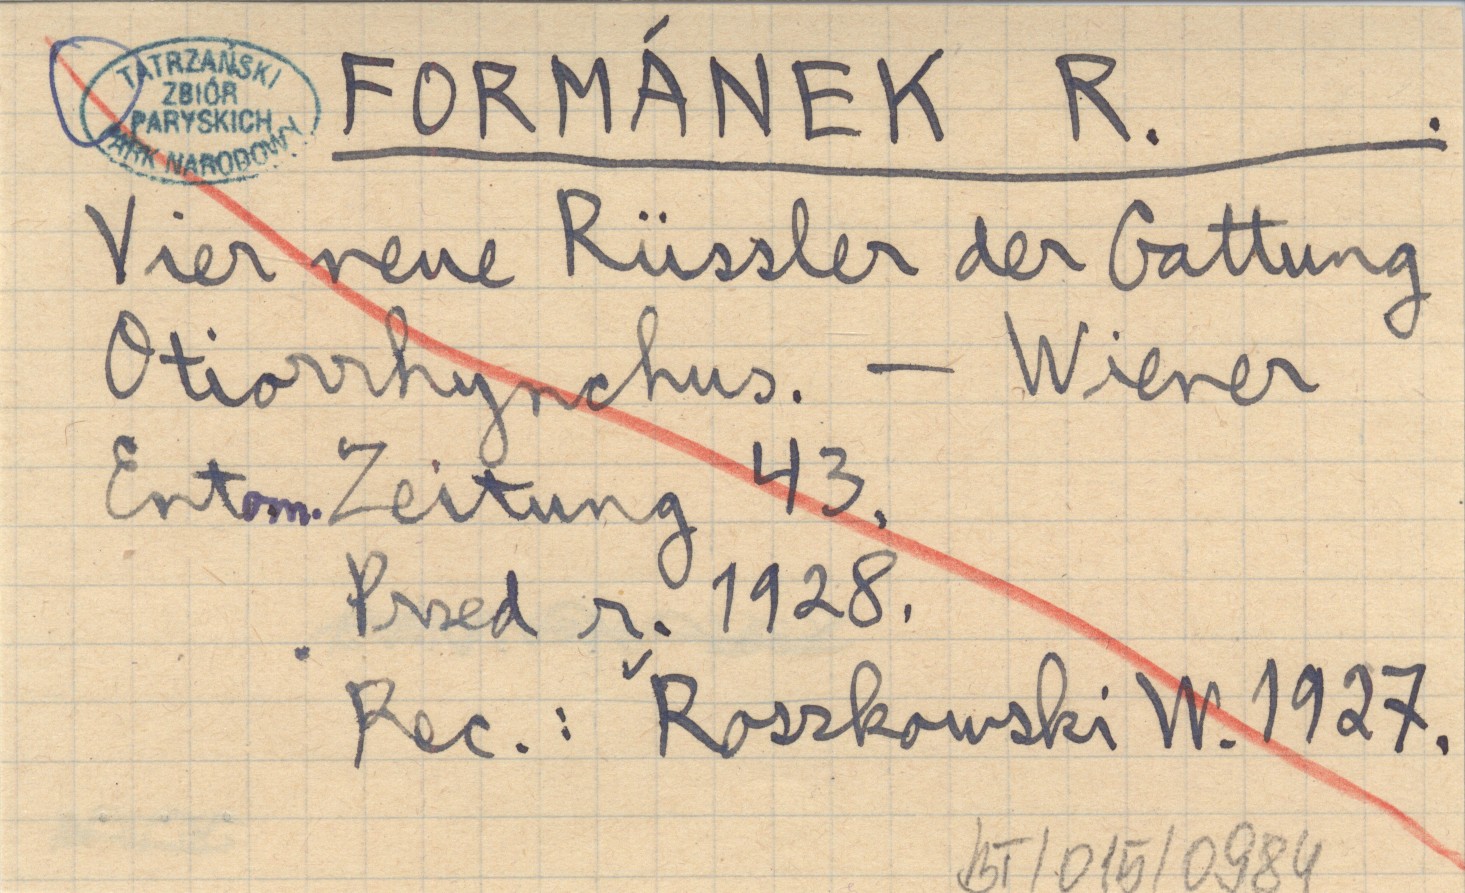 TATRZAŃSKI
ZBIÓR
PARYSKICH
PARK NARODOWY
FORMÁNEK R. .
Vier neue Rüssler der Gattung
Otiorrhynchus. — Wiener
Entom. Zeitung 43.
Przed r. 1928.
Rec.: Roszkowski W. 1927.
BT/015/0984